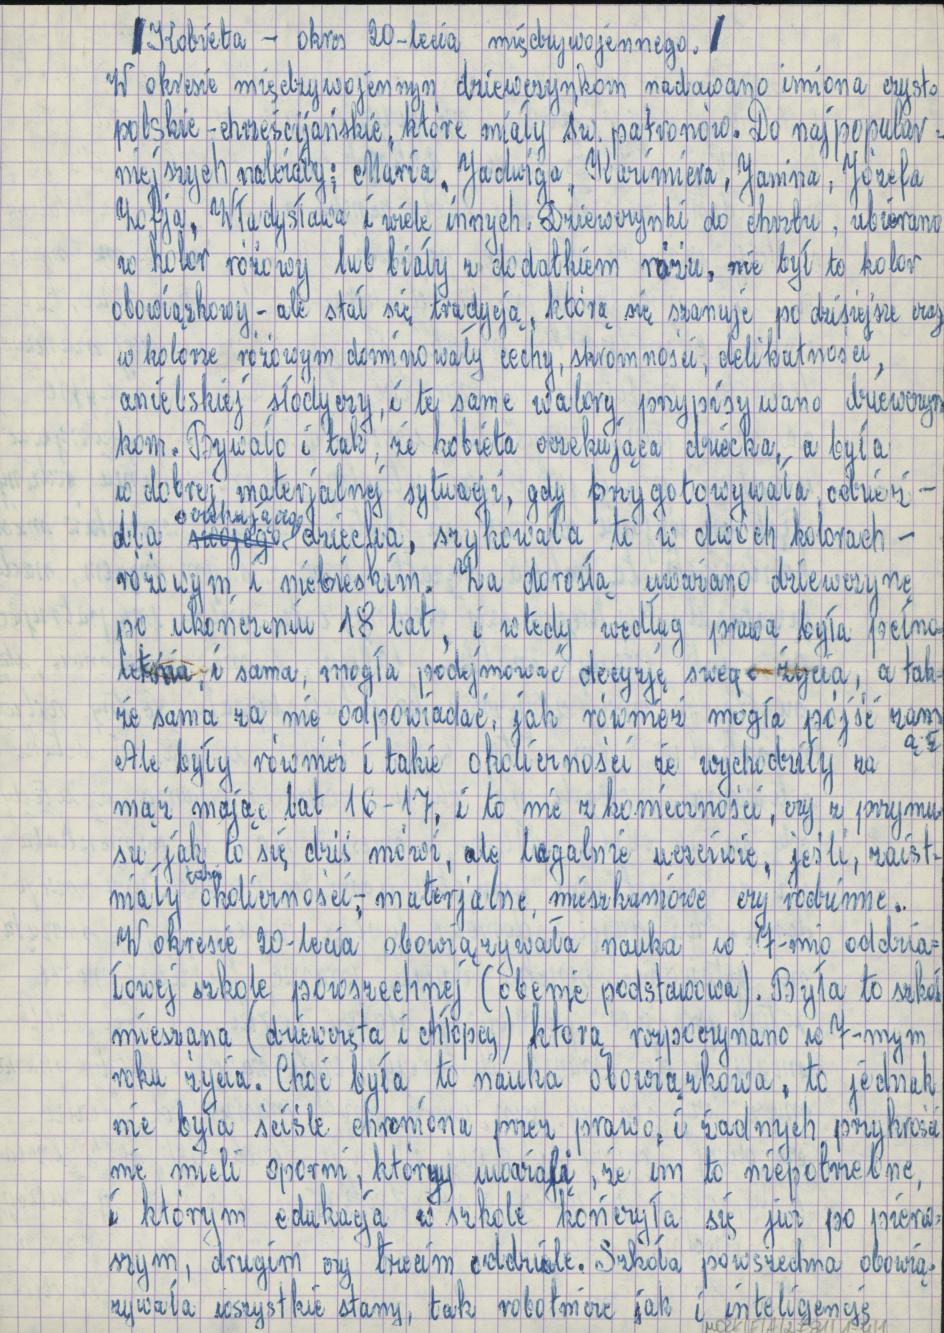 Kobieta – okres 20-lecia międzywojennego.
W okresie międzywojennym dziewczynkom nadawano imiona czysto
polskie – chrześcijańskie, które miały św. patronów. Do najpopular-
niejszych należały; Maria, Jadwiga, Kazimiera, Janina, Józefa
Zofja, Władysława i wiele innych. Dziewczynki do chrztu, ubierano
w kolor różowy lub biały z dodatkiem różu, nie był to kolor
obowiązkowy – ale stał się tradycją, którą się szanuje po dzisiejsze czasy
w kolorze różowym dominowały cechy, skromności, delikatności,
anielskiej słodyczy, i te same walory przypisywano dziewczyn
kom. Bywało i tak, że kobieta oczekująca dziecka, a była
w dobrej materjalnej sytuacji, gdy przygotowywała odzież –
dla swojego oczekującego dziecka, szykowała to w dwóch kolorach –
różowym i niebieskim. Za dorosłą uważano dziewczynę
po ukończeniu 18 lat, i wtedy według prawa była pełno-
letnia, i sama, mogła podejmować decyzję swego życia, a tak-
że sama za nie odpowiadać, jak również mogła pójść zamąż
Ale były również i takie okoliczności że wychodziły za
mąż mając lat 16-17, i to nie z konieczności, czy z przymu
su jak to się dziś mówi, ale legalnie uczciwie, jeśli, zaist-
miały takie okoliczności; – materjalne, mieszkaniowe czy rodzinne..
W okresie 20-lecia obowiązywała nauka w 7-mio oddzia-
łowej szkole powszechnej (obecnie podstawowa). Była to szkoła
mieszana (dziewczęta i chłopcy) którą rozpoczynano w 7-mym
roku życia. Choć była to nauka obowiązkowa, to jednak
nie była ściśle chroniona przez prawo, i żadnych przykrości
nie mieli oporni, którzy uważali, że im to niepotrzebne,
i którym edukacja w szkole kończyła się już po pierw-
szym, drugim czy trzecim oddziale. Szkoła powszechna obowią-
zywała wszystkie stany, tak robotnicze jak i inteligencję